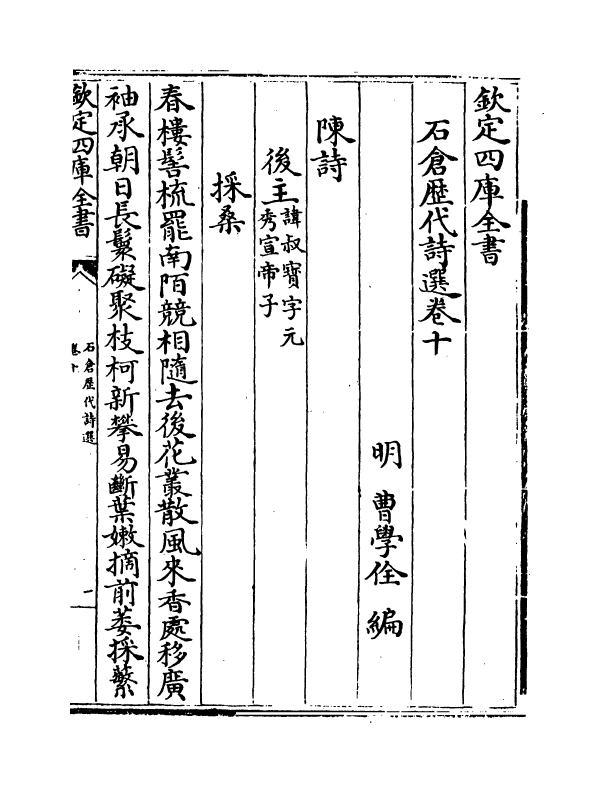 欽定四庫全書
石倉歴代詩選卷十
明 曹學佺 編
陳詩
後主 諱叔寳字元
秀宣帝子
採桑
春樓髻梳罷南陌競相隨去後花叢散風來香處移廣
袖承朝日長鬟礙聚枝柯新攀易斷葉嫩摘前萎採蘩
欽定四庫全書
石倉歴代詩選
卷十
一